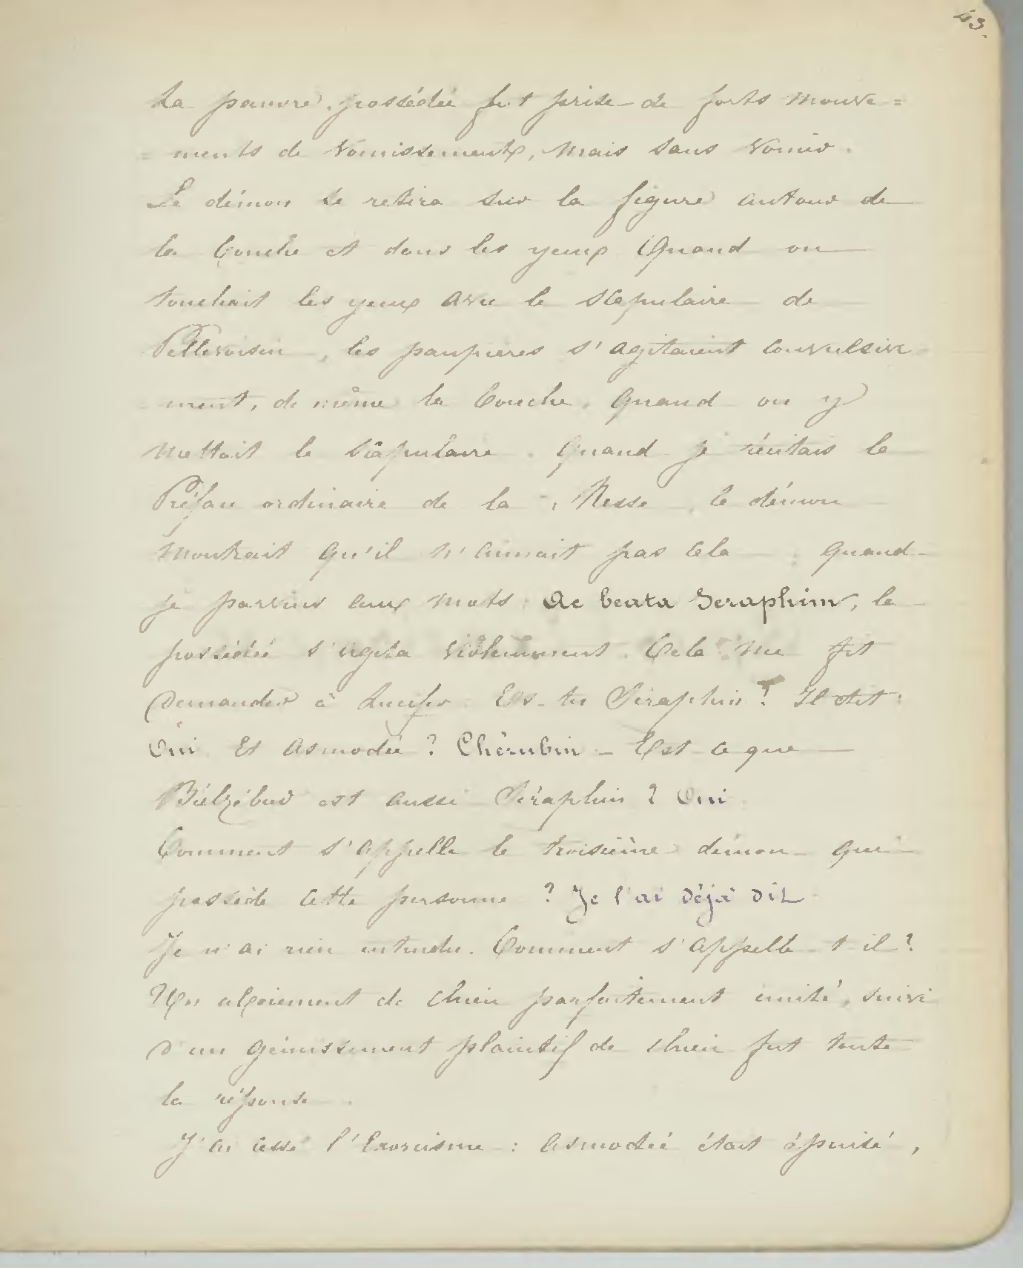 43.
La pauvre possédée fut prise de forts mouve=
= ments de vomissements, mais sans vomir.
Le démon se retira sur la figure autour de
la bouche et dans les yeux Quand on
touchait les yeux avec le scapulaire de
Pellevoisin, les paupières s'agitaient convulsive
= ment, de même la bouche, quand on y
mettait le scapulaire. Quand je récitais la
Préface ordinaire de la Messe, le démon
montrait qu'il n'aimait pas cela. Quand
je parvins aux mots: Ac beata Seraphim, la
possédée s'agita violemment. Cela me fit
demander à Lucifer: Es-tu Séraphin? Il dit:
Oui. Et Asmodée? Chérubin - Est-ce que
Béelzébud est aussi Séraphin? Oui.
Comment s'appelle le troisième démon qui
possède cette personne? Je l'ai déjà dit.
Je n'ai rien entendu. Comment s'appelle-t-il?
Un aboiement de chien parfaitement imité, suivi
d'un gémissement plaintif de chien fut toute
la réponse.
J'ai cessé l'Exorcisme: Asmodée était épuisé,